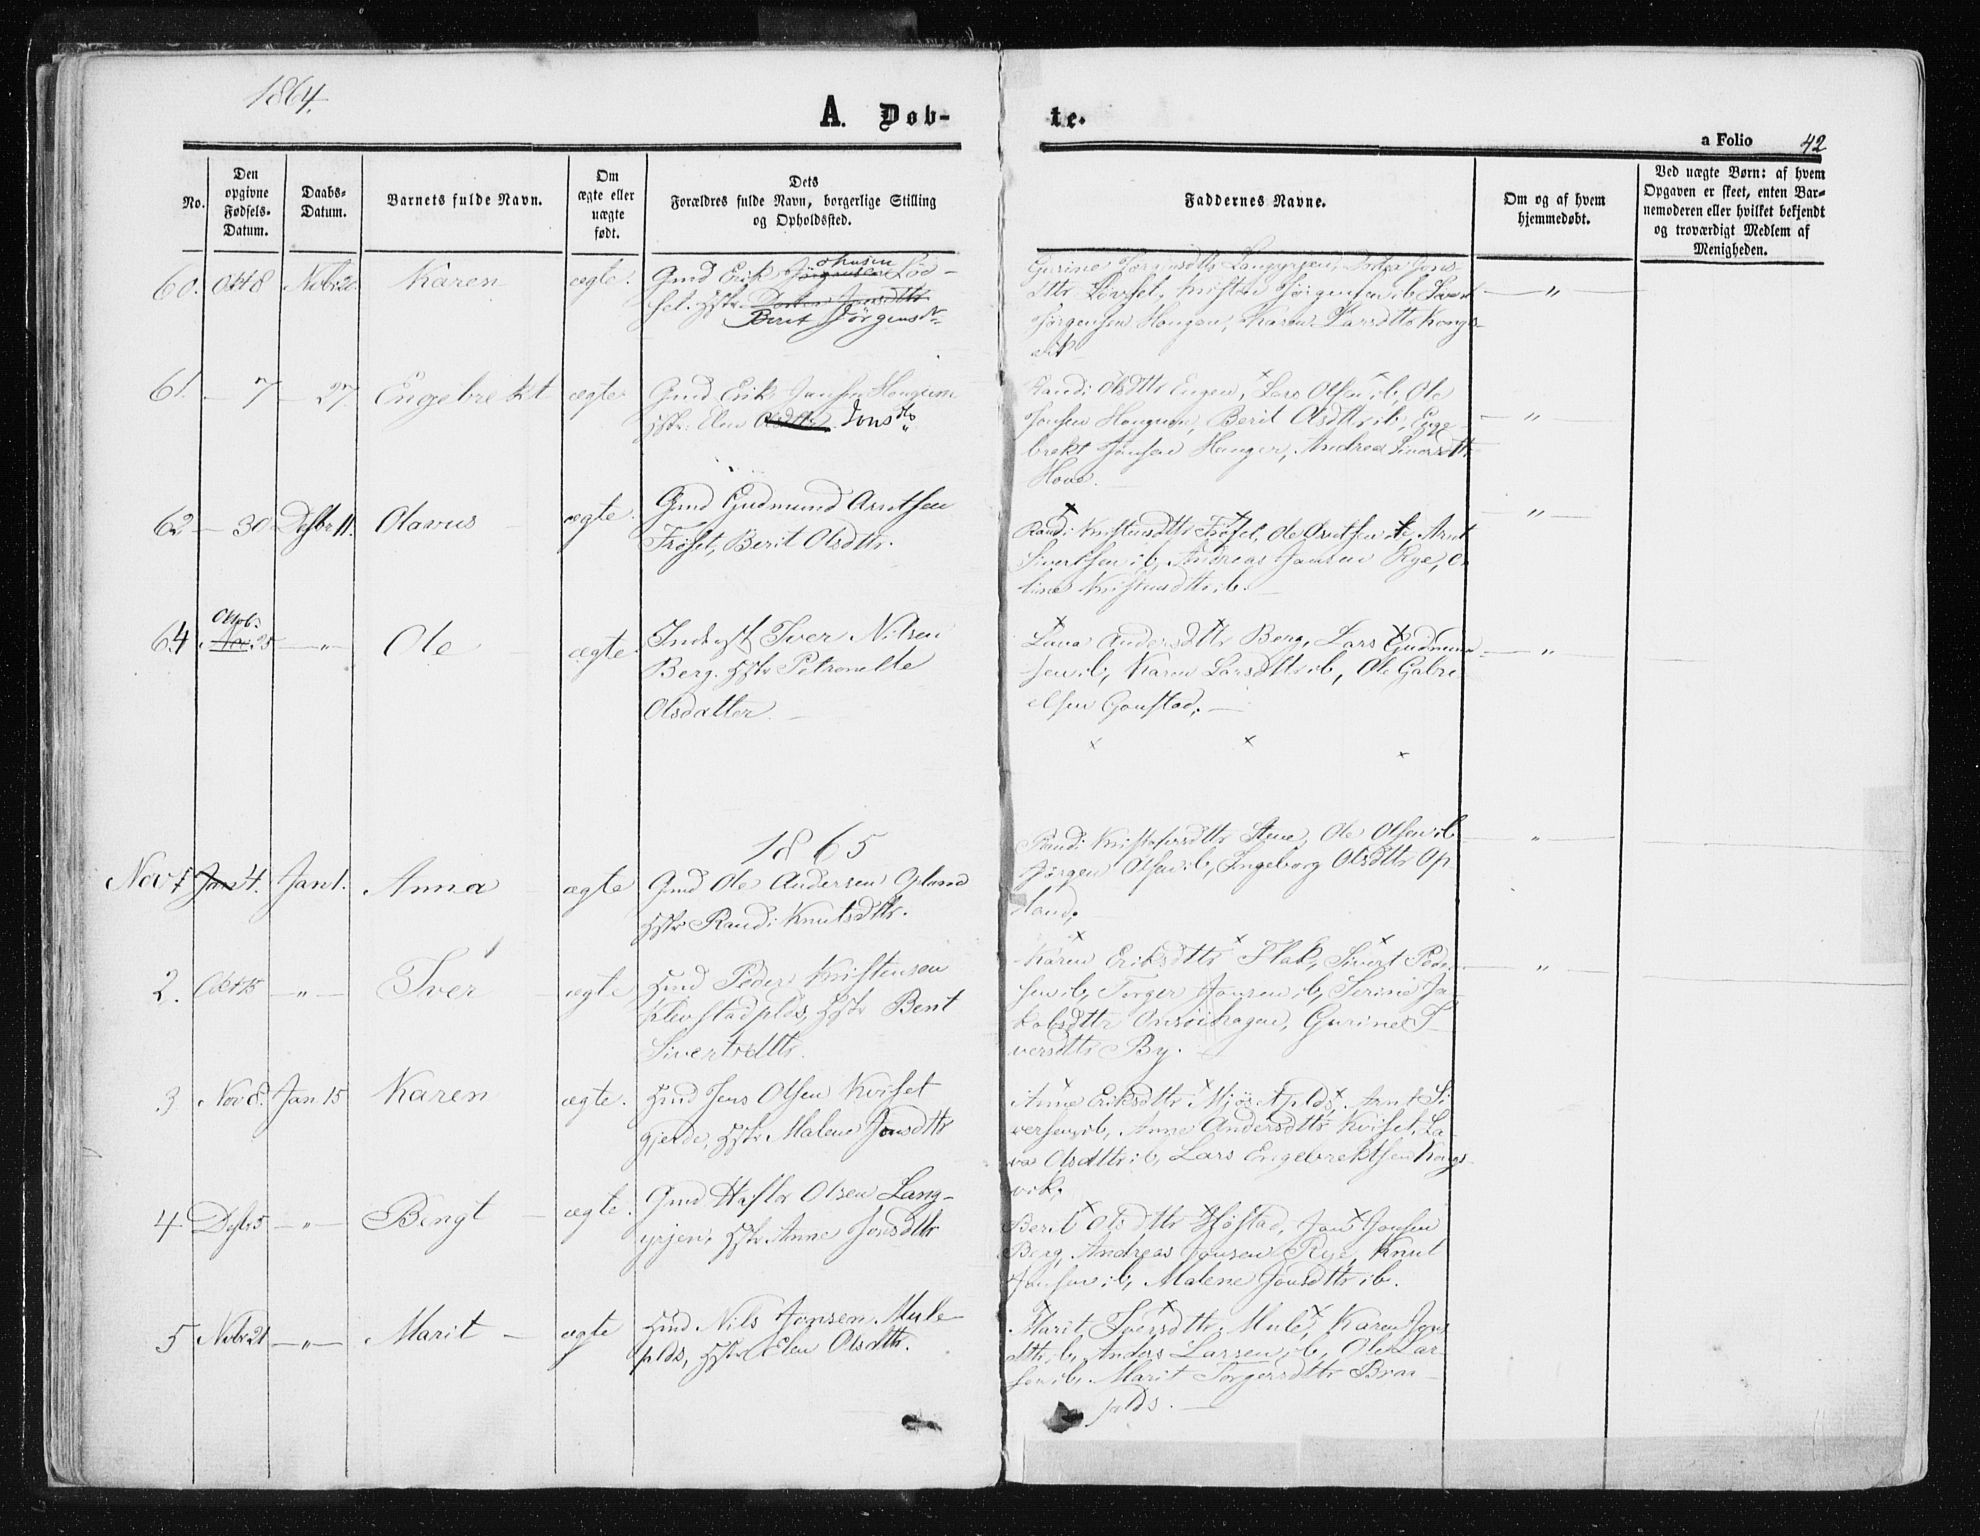 1864.
A. Døb-
te.
a Folio 42
No.
Den
opgivne
Fødsels-
Datum.
Daabs-
Datum.
Barnets fulde Navn.
Om
ægte eller
uægte
født.
Dets
Forældres fulde Navn, borgerlige Stilling
og Opholdssted.
Faddernes Navne.
Om og af hvem
hjemmedøbt.
Ved uægte Børn: af hvem
Opgaven er skeet, enten Bar-
nemoderen eller hvilket bekjendt
og troværdigt Medlem af
Menigheden.
60. Okt 8 Nvbr 20. Karen ægte.
Gmd Erik Jørgensen
Berit Jørgensdt
Jørgensen Haugen, Karen Larsdttr Kongs-
vik
61. - 7 - 27. Engebrekt ægte
Gmd Erik Jonsen Haugum
Hstr. Elen Olsdttr. Jonsdtr
Randi Olsdttr Engen, Lars Olsen ib, Ole
Jonsen Haugum, Berit Olsdttr ib, Enge-
brekt Jonsen Hanger, Andrea Siversdttr
Hove.
62 - 30 Desbr 11. Olavus - ægte.
Gmd Gudmund Arntsen
Frøset, Berit Olsdttr.
Randi Kristensdttr Frøset, Ole Arntsen ib, Arnt
Sivertsen ib, Andreas Jonsen Rye, O-
line Kristensdttr ib. -
64 Oktob: Nov. 25 - " - Ole ægte
Inderst Iver Nilsen
Berg. Hstr Petronelle
Olsdatter. -
Lava Andersdttr Berg, Lars Gudmun-
sen ib, Karen Larsdttr ib, Ole Gabri-
elsen Gaustad. -
1865
Nov 4 Jan 4. Jan 1. Anna - ægte
Gmd Ole Andersen Opland
Hstr Randi Knutsdttr.
Randi Kristofersdttr Stene, Ole Olsen ib
Jørgen Olsen ib, Ingeborg Olsdttr Op-
land.
2. Okt 15 - " - Iver - ægte
Hmd Peder Kristensen
Klevstadplds, Hstr Berit
Sivertsdttr.
Karen Eriksdttr Flak, Sivert Peder-
sen ib, Torger Jonsen ib, Serine Ja-
kobsdttr Onsøihagen, Gurine I-
versdttr By.
3 Nov 8. Jan 15 Karen ægte.
Hmd Jens Olsen Kviset
gjerde, Hstr Malene Jonsdttr
Anne Eriksdttr Mjøstplds. Arnt Si-
versen ib, Anne Andersdttr Kviset, La-
va Olsdttr ib, Lars Engebrektsen Kongs-
vik.
4 Dsbr 5 - " - Bengt - ægte.
Gmd Olsen Lang-
yrjen, Hstr Anne Jonsdttr
Berit Olsdttr Høstad, Jon Jonsen
Berg, Andreas Jonsen Rye, Knut
Jonsen ib, Malene Jonsdttr ib.
5 Nvbr 21 - " - Marit - ægte
Hmd Nils Jonsen Mule-
plds, Hstr Elen Olsdttr.
Marit Iversdttr Mule, Karen Jons-
dttr ib, Anders Larsen ib, Ole Lar-
sen ib, Marit Torgersdttr Braa-
plds. -